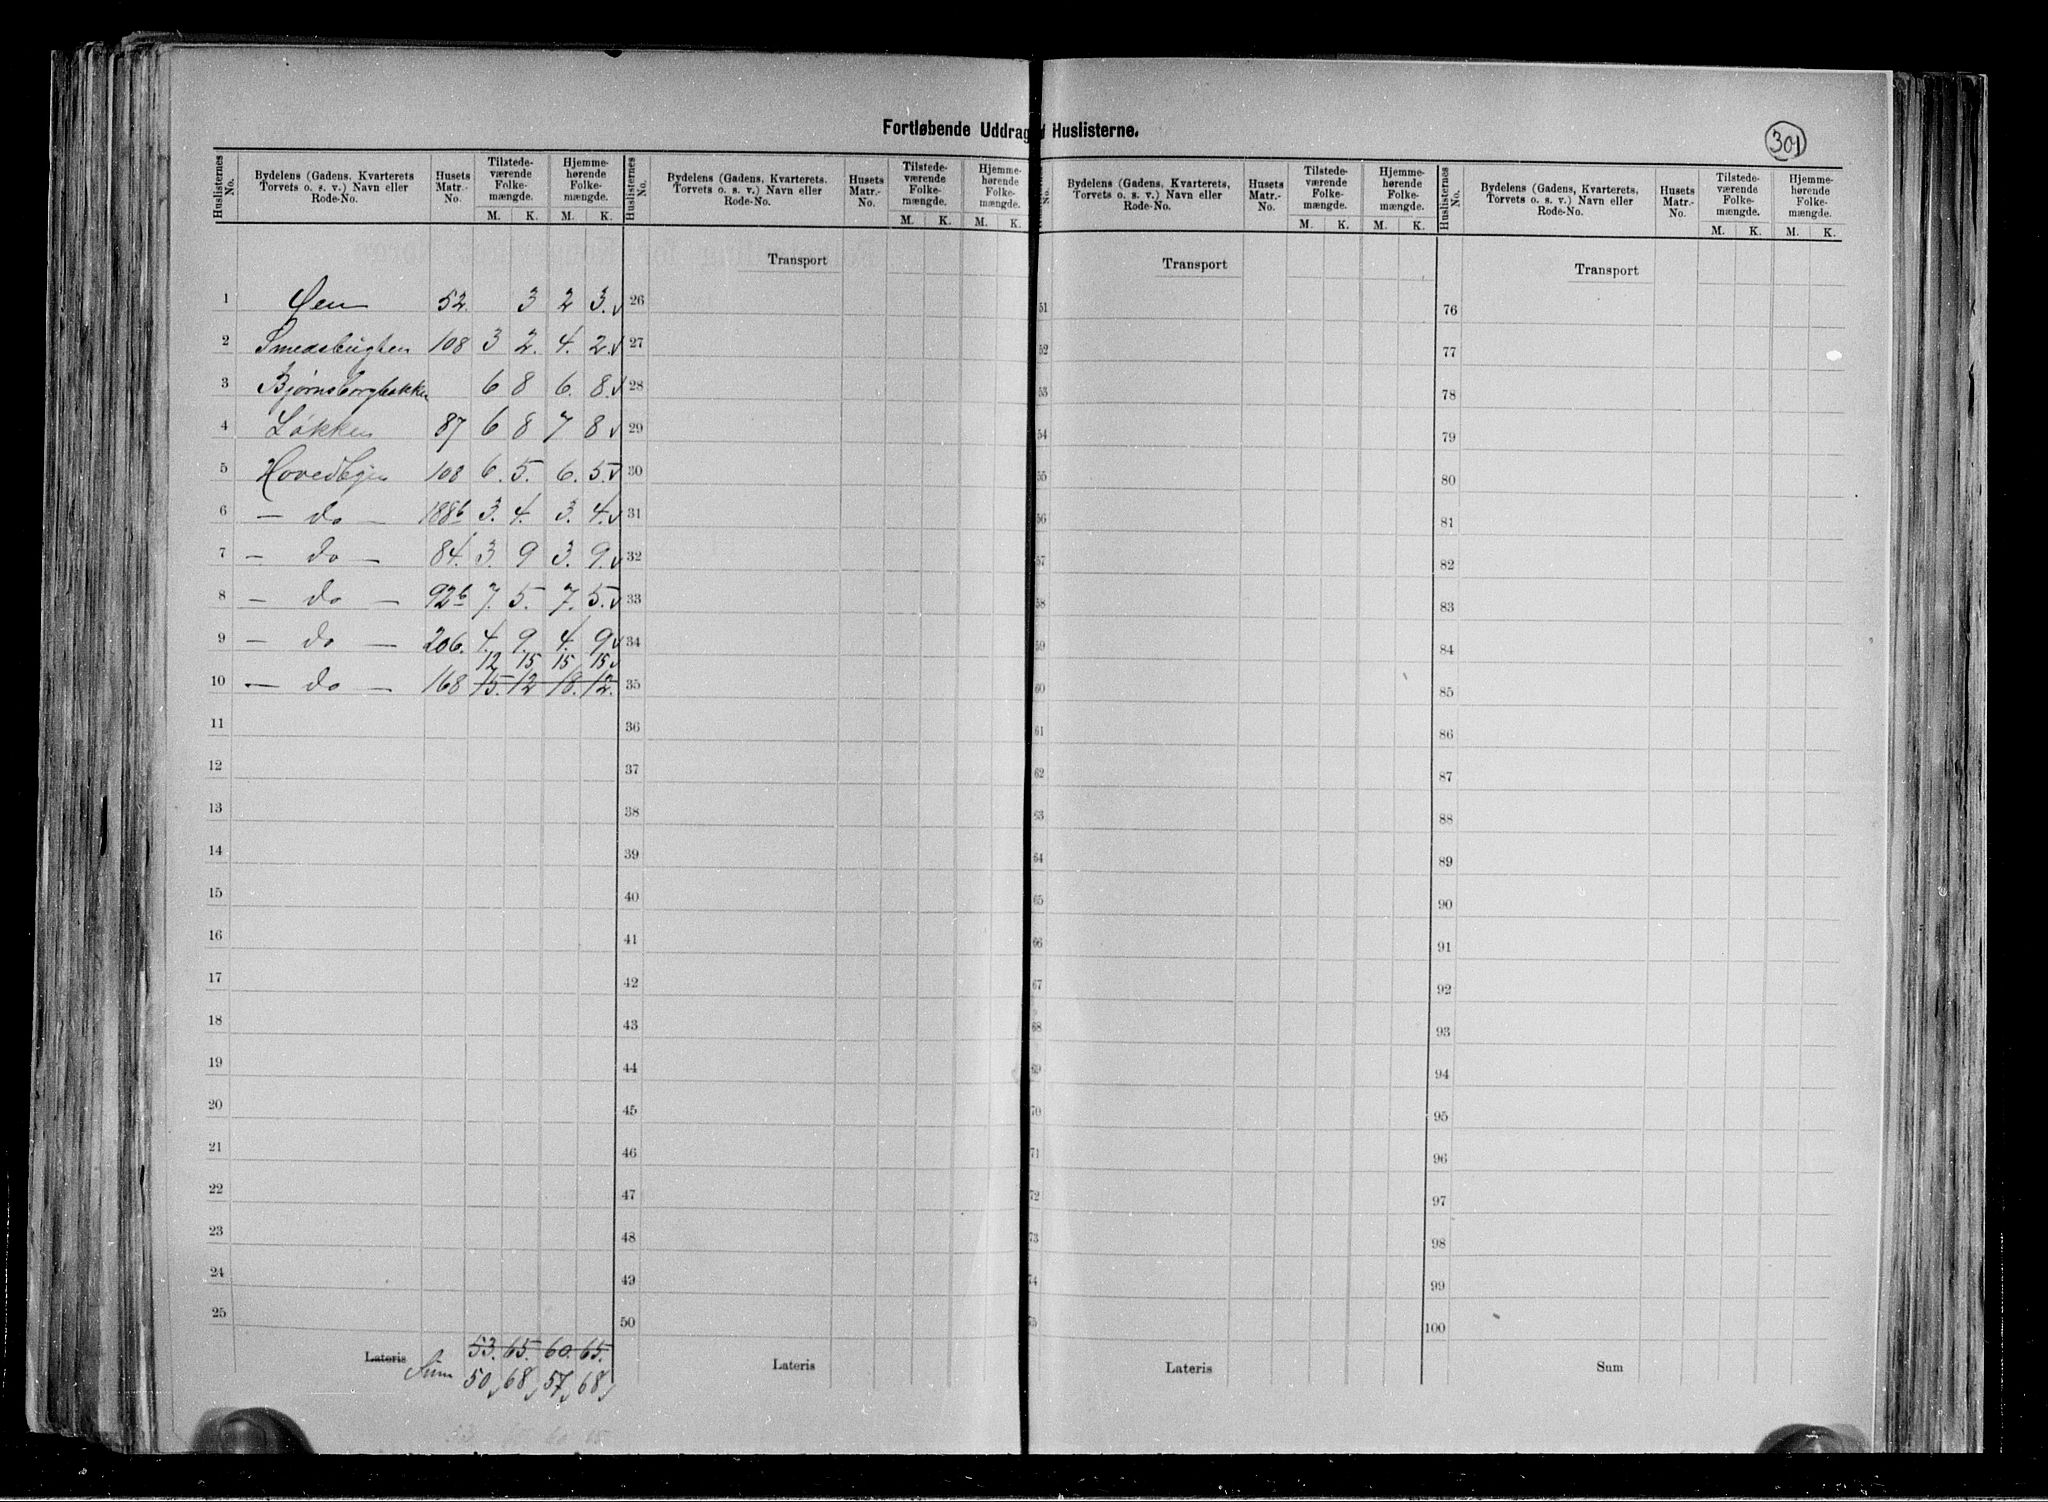 Fortløbende Uddrag af Huslisterne.
301
Huslisternes No. | Bydelens (Gadens, Kvarterets Torvets o. s. v.) Navn eller Rode-No. | Husets Matr.-No. | Tilstede-værende Folke-mængde. M. K. | Hjemme-hørende Folke-mængde. M. K.
Huslisternes No. | Bydelens (Gadens, Kvarterets, Torvets o. s. v.) Navn eller Rode-No. | Husets Matr.-No. | Tilstede-værende Folke-mængde. M. K. | Hjemme-hørende Folke-mængde. M. K.
Bydelens (Gadens, Kvarterets, Torvets o. s. v.) Navn eller Rode-No. | Husets Matr.-No. | Tilstede-værende Folke-mængde. M. K. | Hjemme-hørende Folke-mængde. M. K.
Huslisternes No. | Bydelens (Gadens, Kvarterets, Torvets o. s. v.) Navn eller Rode-No. | Husets Matr.-No. | Tilstede-værende Folke-mængde. M. K. | Hjemme-hørende Folke-mængde. M. K.
1 Øen 52. 3 2 3.
2 Smedsbugten 108 3 2. 4. 2.
3 Bjørnsborgbakken 6 8 6. 8.
4 Løkken 87 6 8 7 8
5 Hovedbyen 108 6. 5. 6. 5.
6 — do — 188b 3. 4. 3. 4.
7 — do — 84. 3. 9 3. 9.
8 — do — 92b 7. 5. 7. 5.
9 — do — 206. 4. 9. 4. 9
12 15 15 15
10 — do — 168 15. 12 18. 12.
11
12
13
14
15
16
17
18
19
20
21
22
23
24
25
Lateris Sum 53. 65. 60. 65.
50 68 57 68
Transport
26
27
28
29
30
31
32
33
34
35
36
37
38
39
40
41
42
43
44
45
46
47
48
49
50
Lateris
Transport
51
52
53
54
55
56
57
58
59
60
61
62
63
64
65
66
67
68
69
70
71
72
73
74
75
Lateris
Transport
76
77
78
79
80
81
82
83
84
85
86
87
88
89
90
91
92
93
94
95
96
97
98
99
100
Sum